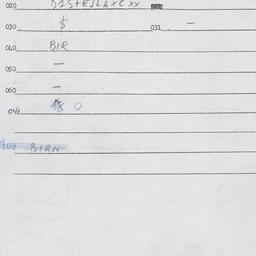 020 DISTELAXCXX
030 $ 031 –
040 BIR
050 –
060 –
041 0
900 BIRN